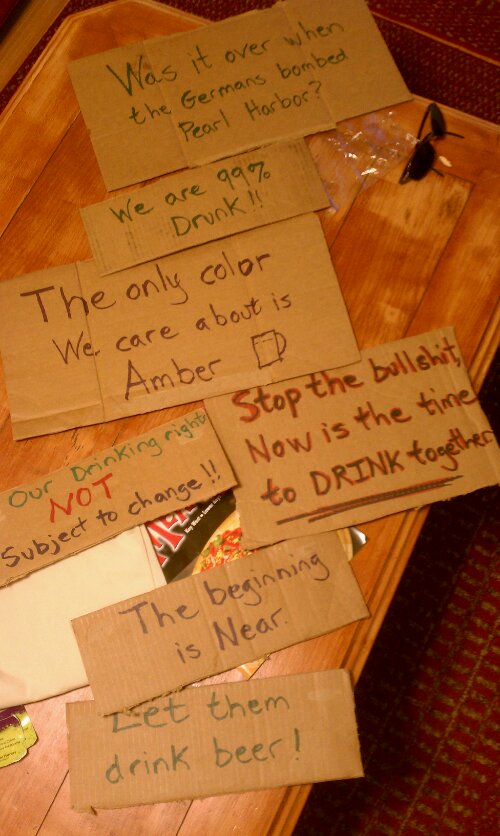 Was it over when
the Germans bombed
Pearl Harbor?
We are 99%
Drunk!!
The only color
We care about is
Amber
Stop the bullshit,
Now is the time
to DRINK together
Our Drinking right
NOT
Subject to change!!
The beginning
is Near.
Let them
drink beer!